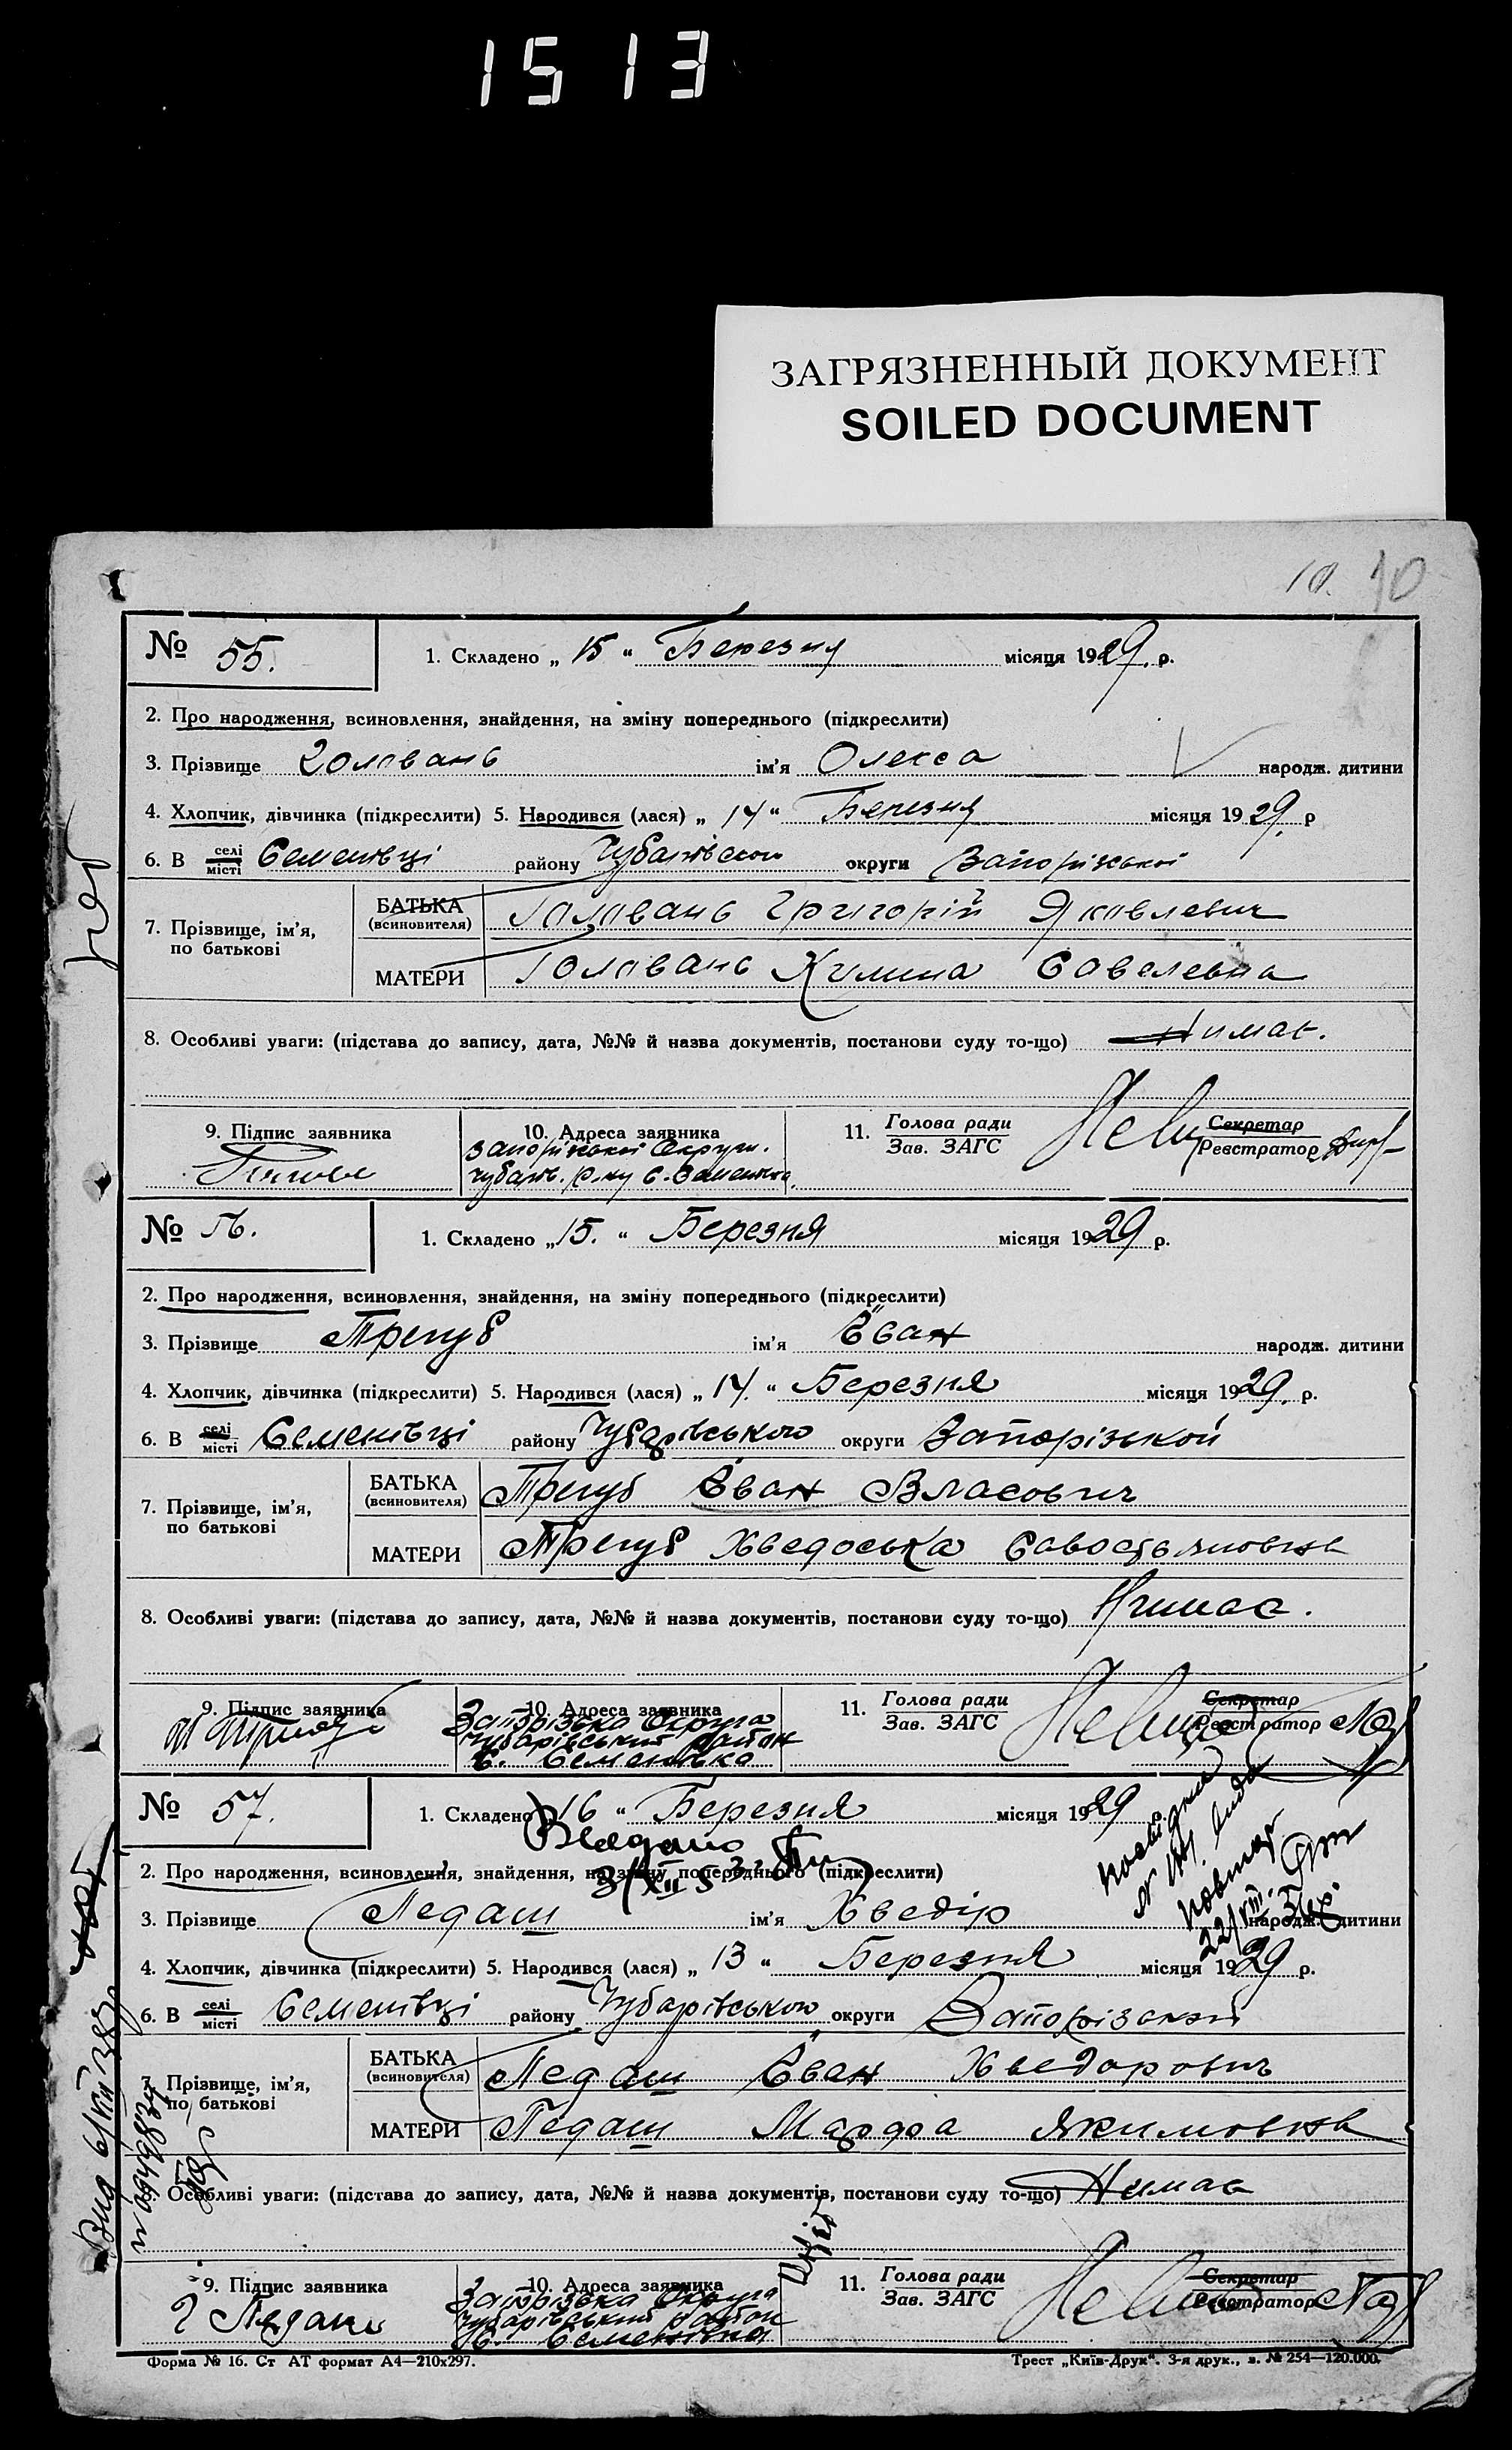 1513
ЗАГРЯЗНЕННЫЙ ДОКУМЕНТ
SOILED DOCUMENT
10. 10
№ 55. 1. Складено „ 15 “ Березня місяця 1929. р.
2. Про народження, всиновлення, знайдення, на зміну попереднього (підкреслити)
3. Прізвище Головань ім’я Олекса народж. дитини
4. Хлопчик, дівчинка (підкреслити) 5. Народився (лася) „ 14 “ Березня місяця 1929. р
6. В селі місті Семенівці району Чубарівського округи Запорізької
7. Прізвище, ім’я, по батькові
БАТЬКА (всиновителя) Головань Григорій Яковлевич
МАТЕРИ Головань Килина Савелевна
8. Особливі уваги: (підстава до запису, дата, №№ й назва документів, постанови суду то-що) Нимає.
9. Підпис заявника 10. Адреса заявника 11. Голова ради Зав. ЗАГС Секретар Реєстратор
Запорізької Округи.
Чубарів. р-ну с. Семенівка
№ 56. 1. Складено „15. “ Березня місяця 1929 р.
2. Про народження, всиновлення, знайдення, на зміну попереднього (підкреслити)
3. Прізвище Трегуб ім’я Єван народж. дитини
4. Хлопчик, дівчинка (підкреслити) 5. Народився (лася) „ 14. “ Березня місяця 1929. р.
6. В селі місті Семенівці району Чубарівського округи Запорізькой
7. Прізвище, ім’я, по батькові
БАТЬКА (всиновителя) Трегуб Єван Власович
МАТЕРИ Трегуб Хведоська Савостьяновна
8. Особливі уваги: (підстава до запису, дата, №№ й назва документів, постанови суду то-що) Нимає.
9. Підпис заявника 10. Адреса заявника 11. Голова ради Зав. ЗАГС Секретар Реєстратор
Запорізька Округа
Чубарівський район
С. Семенівка
№ 57. 1. Складено „ 16 “ Березня місяця 1929 р.
2. Про народження, всиновлення, знайдення, на зміну попереднього (підкреслити)
3. Прізвище Педаш ім’я Хведір народж. дитини
4. Хлопчик, дівчинка (підкреслити) 5. Народився (лася) „ 13 “ Березня місяця 1929 р.
6. В селі місті Семенівці району Чубарівського округи Запорізькой
7. Прізвище, ім’я, по батькові
БАТЬКА (всиновителя) Педаш Єван Хведорович
МАТЕРИ Педаш Марфа Якимовна
8. Особливі уваги: (підстава до запису, дата, №№ й назва документів, постанови суду то-що) Нимає
9. Підпис заявника 10. Адреса заявника 11. Голова ради Зав. ЗАГС Секретар Реєстратор
Запорізька Округа
Чубарівський район
С. Семенівка
Форма № 16. Ст АТ формат А4—210х297. Трест „Київ-Друк“. 3-я друк., з. № 254—120.000.